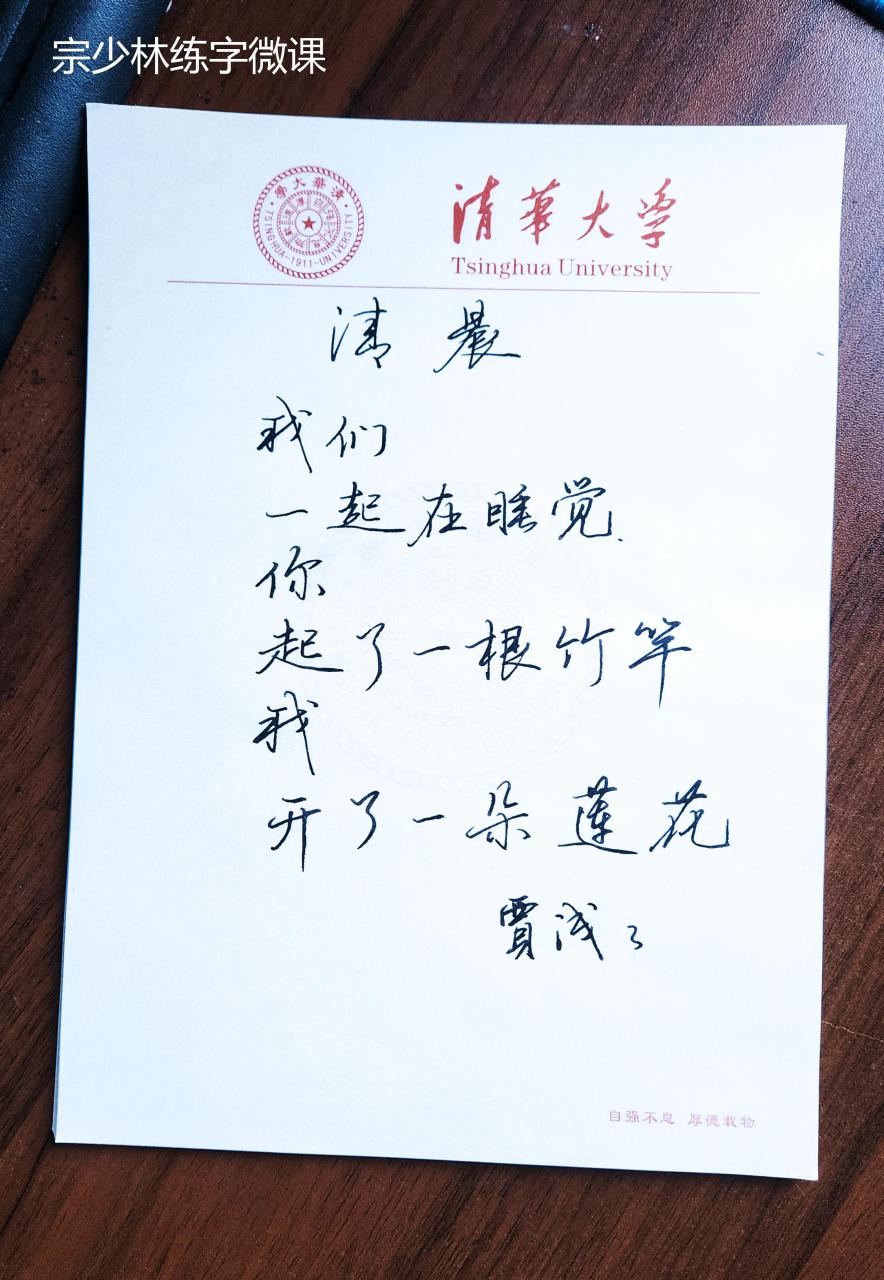 宗少林练字微课
清華大学
Tsinghua University
清晨
我们
一起在睡觉.
你
起了一根竹竿
我
开了一朵莲花
賈浅〻
自强不息 厚德载物
TSINGHUA-1911-UNIVERSITY